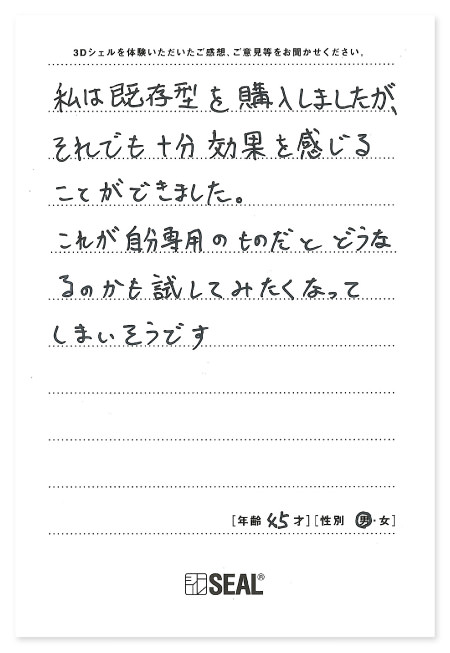 3Dシェルを体験いただいたご感想、ご意見等をお聞かせください。
私は既存型を購入しましたが、
それでも十分効果を感じる
ことができました。
これが自分専用のものだとどうな
るのかも試してみたくなって
しまいそうです
[年齢 45才][性別 男・女]
シール SEAL®